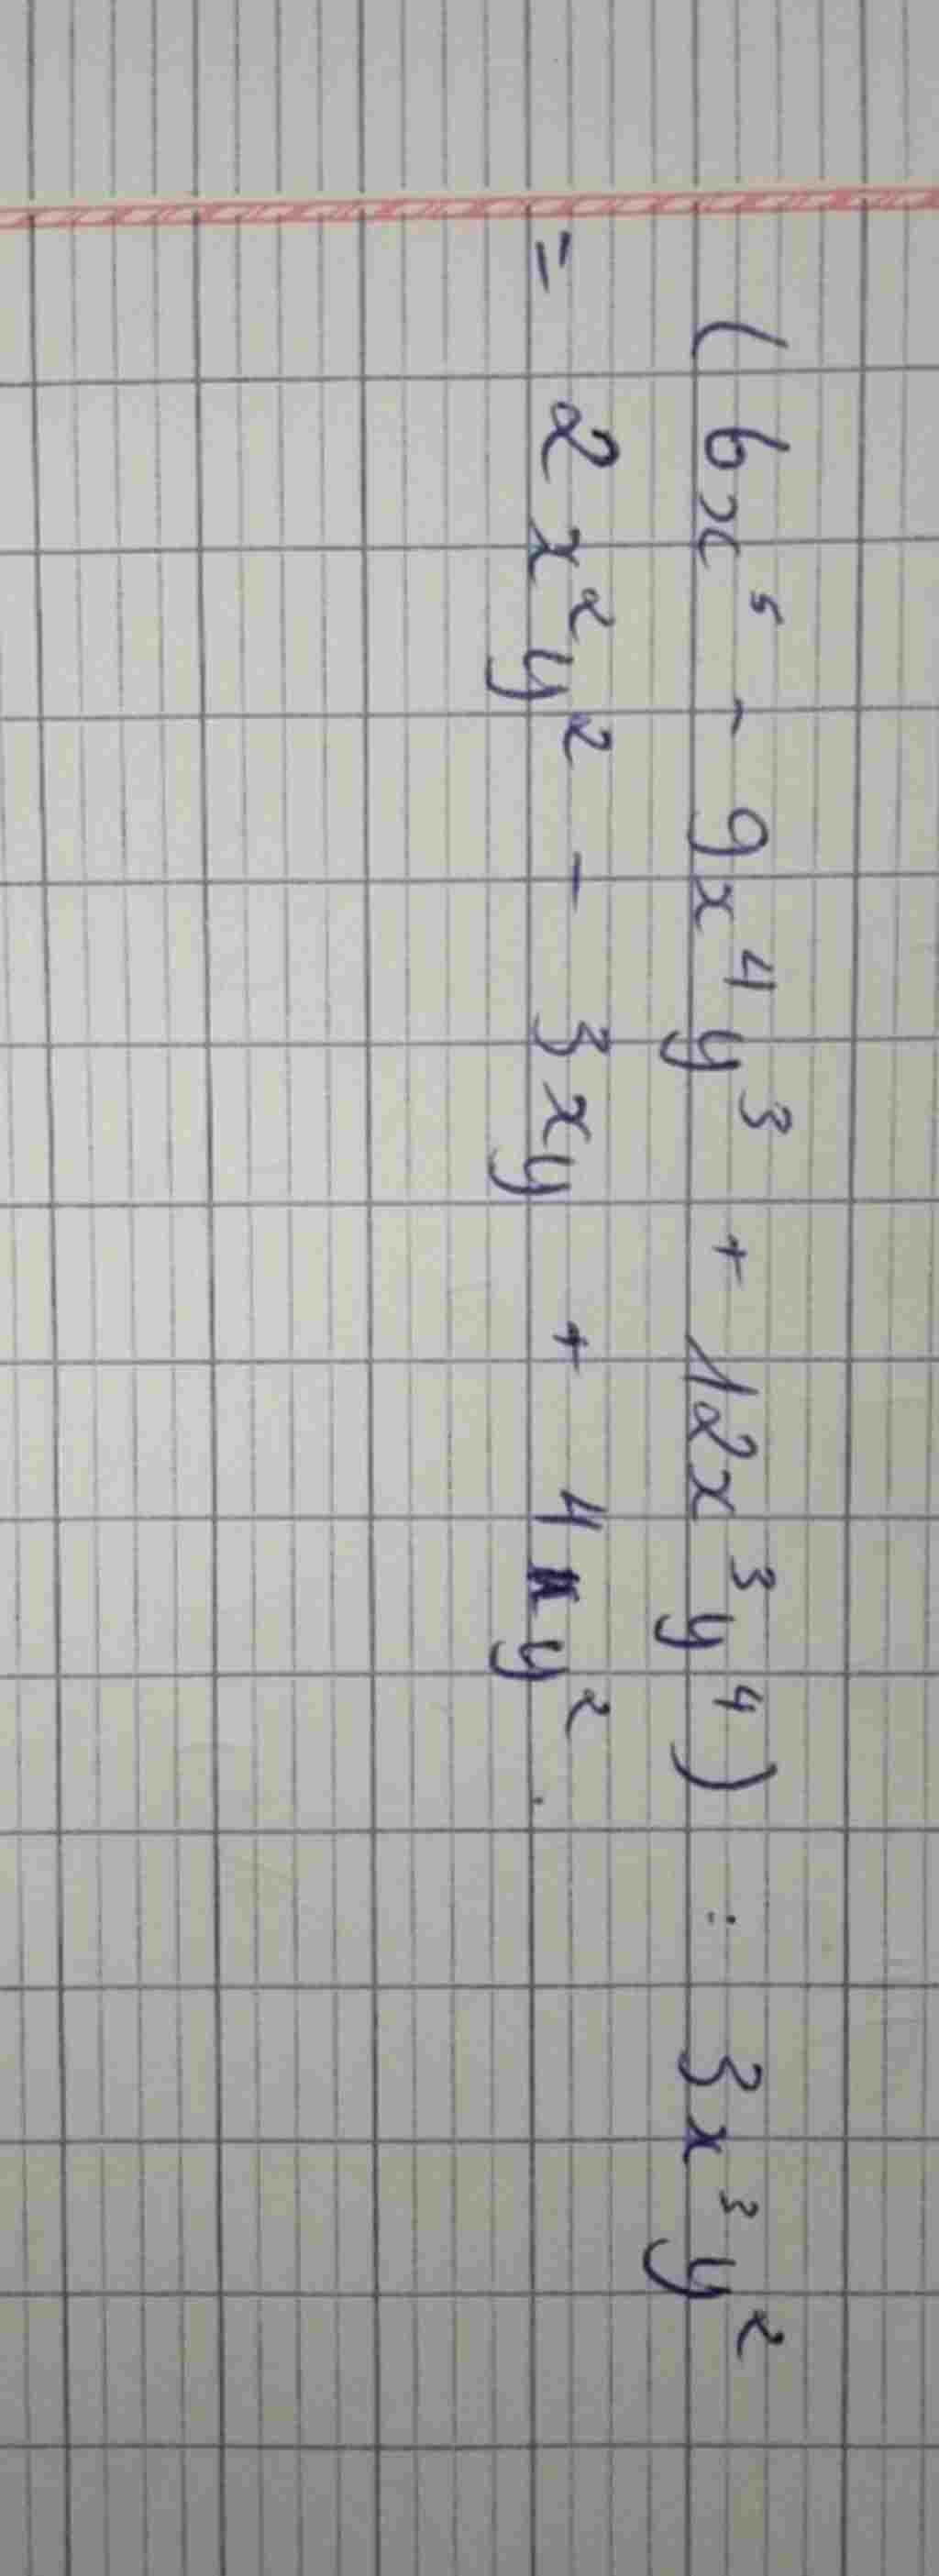 (6x⁵ - 9x⁴y³ + 12x³y⁴) : 3x³y²
= 2x²y² - 3xy + 4y².